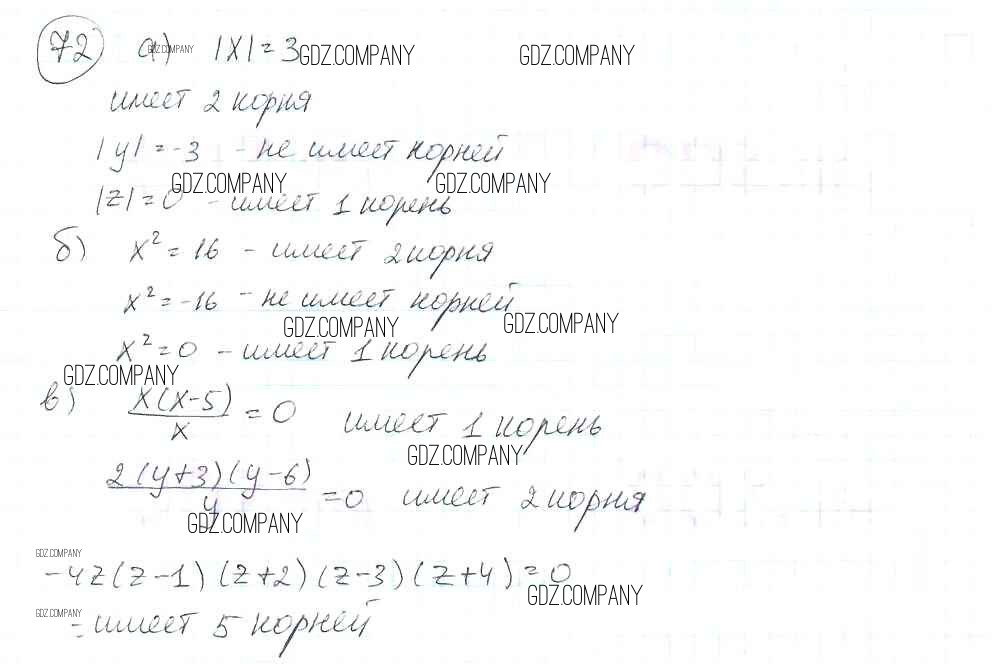 72 а) |x| = 3 GDZ.COMPANY GDZ.COMPANY GDZ.COMPANY
имеет 2 корня
|y| = -3 - не имеет корней
GDZ.COMPANY GDZ.COMPANY
|z| = 0 - имеет 1 корень
б) x² = 16 - имеет 2 корня
x² = -16 - не имеет корней
GDZ.COMPANY GDZ.COMPANY
x² = 0 - имеет 1 корень
GDZ.COMPANY
в) x(x-5)/x = 0 имеет 1 корень
GDZ.COMPANY
2(y+3)(y-6)/y = 0 имеет 2 корня
GDZ.COMPANY
GDZ.COMPANY
-4z(z-1)(z+2)(z-3)(z+4) = 0
GDZ.COMPANY
GDZ.COMPANY
- имеет 5 корней